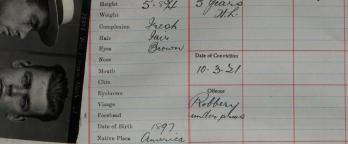 Height 5. 8¾ 5 years
Weight H.L.
Complexion Fresh
Hair Fair
Eyes Brown
Nose Date of Conviction
Mouth 10.3.21
Chin
Eyebrows Offence
Visage Robbery
Forehead under arms
Date of Birth 1897
Native Place America